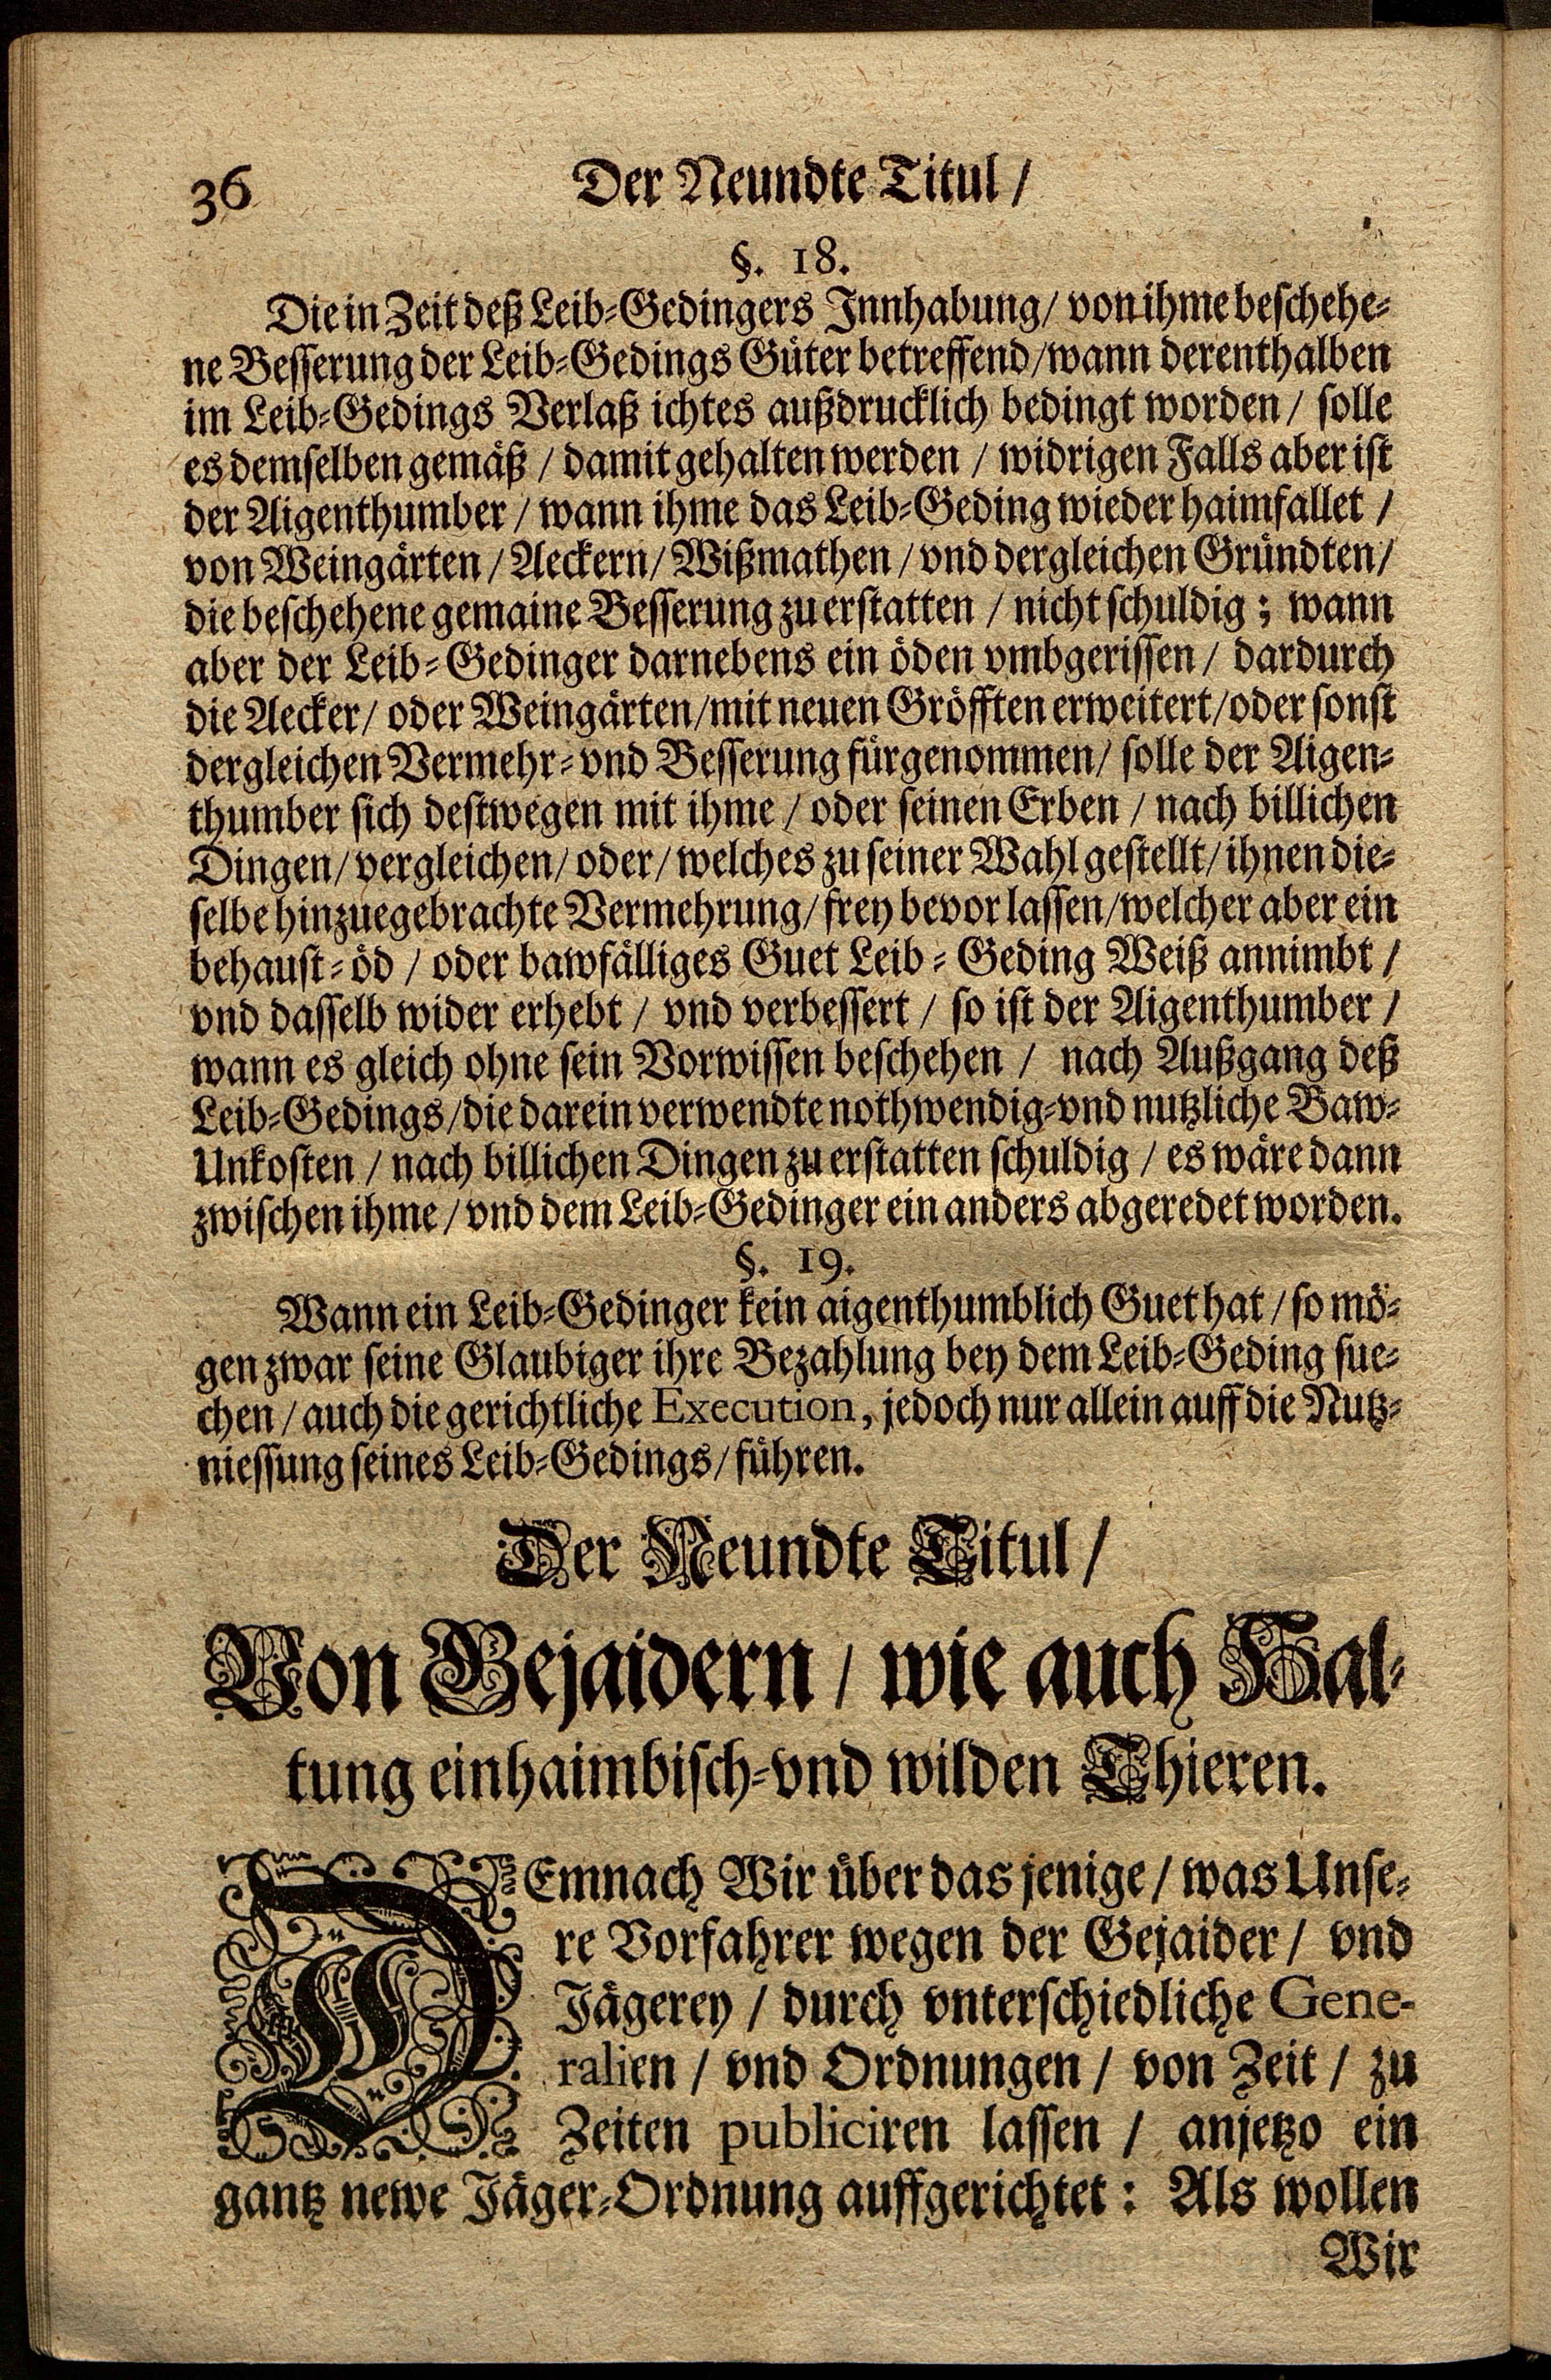 36 Der Neundte Titul /
§. 18.
Die in Zeit deß Leib-Gedingers Innhabung / von ihme beschehe-
ne Besserung der Leib-Gedings Güter betreffend / wann derenthalben
im Leib-Gedings Verlaß ichtes außdrucklich bedingt worden / solle
es demselben gemäß / damit gehalten werden / widrigen Falls aber ist
der Aigenthumber / wann ihme das Leib-Geding wieder haimfallet /
von Weingärten / Aeckern / Wißmathen / vnd dergleichen Gründten /
die beschehene gemaine Besserung zu erstatten / nicht schuldig ; wann
aber der Leib-Gedinger darnebens ein öden vmbgerissen / dardurch
die Aecker / oder Weingärten / mit neuen Gröfften erweitert / oder sonst
dergleichen Vermehr- vnd Besserung fürgenommen / solle der Aigen-
thumber sich destwegen mit ihme / oder seinen Erben / nach billichen
Dingen / vergleichen / oder / welches zu seiner Wahl gestellt / ihnen die-
selbe hinzuegebrachte Vermehrung / frey bevor lassen / welcher aber ein
behaust-öd / oder bawfälliges Guet Leib-Geding Weiß annimbt /
vnd dasselb wider erhebt / vnd verbessert / so ist der Aigenthumber /
wann es gleich ohne sein Vorwissen beschehen / nach Außgang deß
Leib-Gedings / die darein verwendte nothwendig- vnd nutzliche Baw-
Unkosten / nach billichen Dingen zu erstatten schuldig / es wäre dann
zwischen ihme / vnd dem Leib-Gedinger ein anders abgeredet worden.
§. 19.
Wann ein Leib-Gedinger kein aigenthumblich Guet hat / so mö-
gen zwar seine Glaubiger ihre Bezahlung bey dem Leib-Geding sue-
chen / auch die gerichtliche Execution, jedoch nur allein auff die Nutz-
niessung seines Leib-Gedings / führen.
Der Neundte Titul /
Von Gejaidern / wie auch Hal-
tung einhaimbisch- vnd wilden Thieren.
DEmnach Wir über das jenige / was Unse-
re Vorfahrer wegen der Gejaider / vnd
Jägerey / durch vnterschiedliche Gene-
ralien / vnd Ordnungen / von Zeit / zu
Zeiten publiciren lassen / anjetzo ein
gantz newe Jäger-Ordnung auffgerichtet : Als wollen
Wir